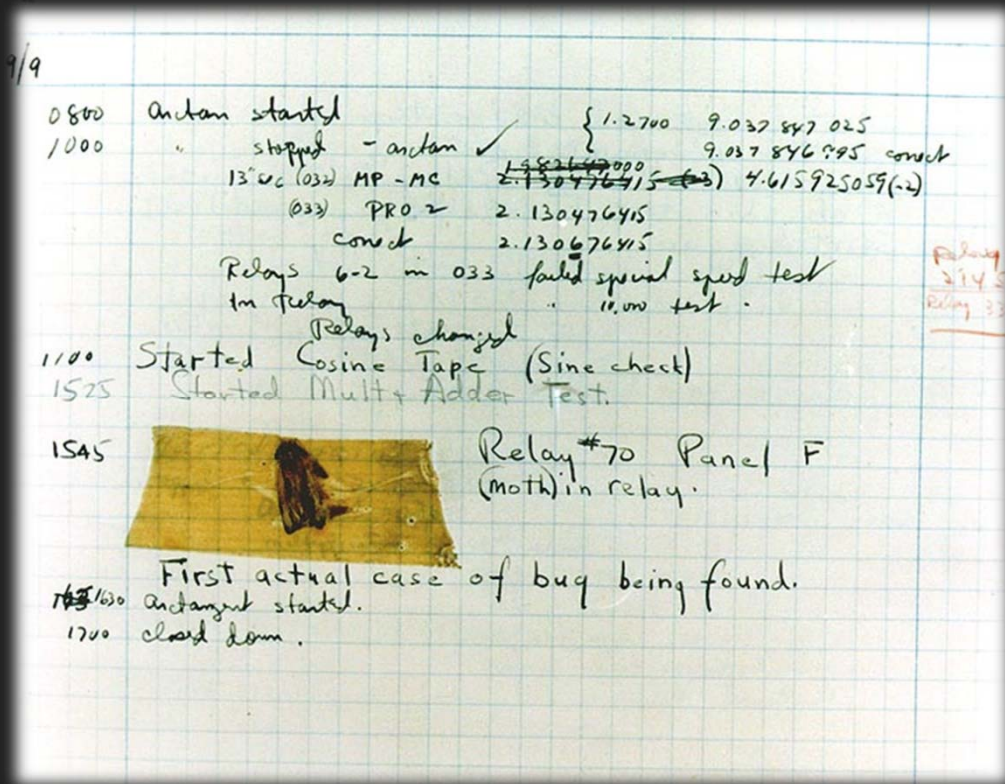 9/9
0800 arctan started { 1.2700 9.037 847 025
1000 " stopped - arctan ✓ 9.037 846 995 correct
13" sec (032) MP - MC 2.130476415 (-3) 4.615925059(-2)
(033) PRO 2 2.130476415
correct 2.130676415
Relays 6-2 in 033 failed special speed test
In Relay " 10.000 test .
Relays changed
1100 Started Cosine Tape (Sine check)
1525 Started Mult + Adder Test.
1545 Relay #70 Panel F
(moth) in relay.
First actual case of bug being found.
1630 arctangent started.
1700 closed down .
Relay
Relay